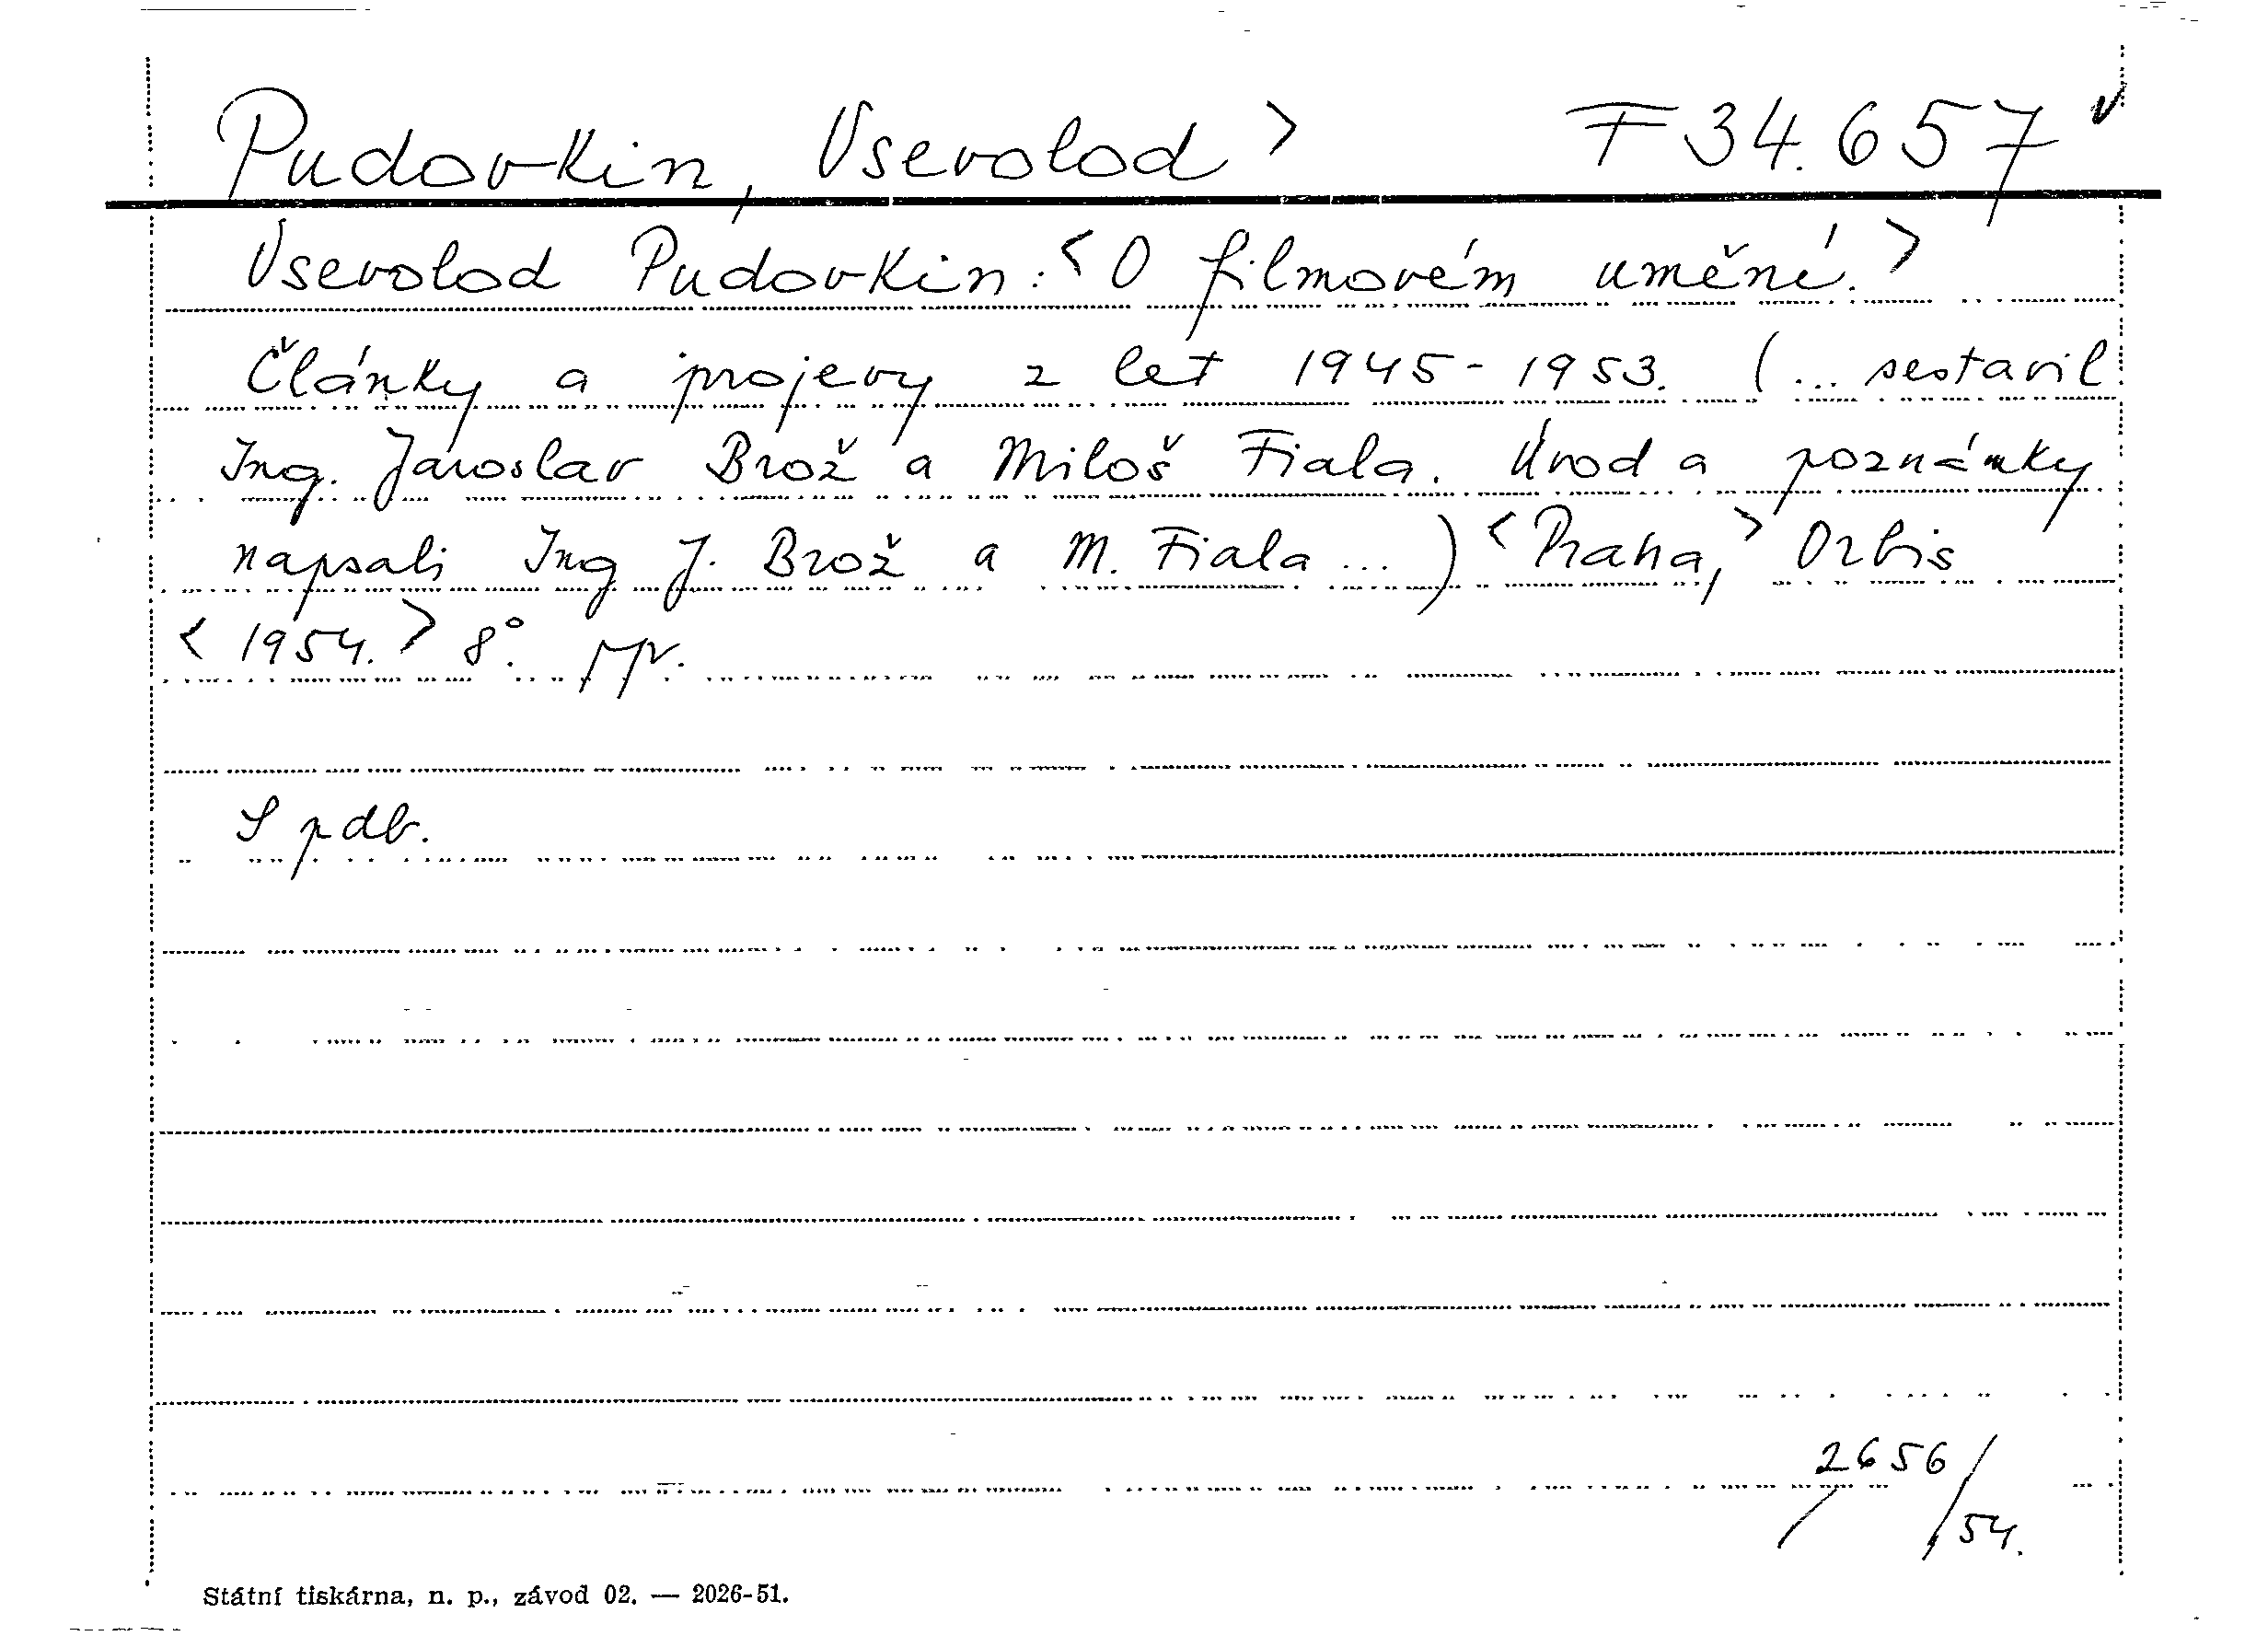 Pudovkin, Vsevolod > F 34.657 v
Vsevolod Pudovkin: <O filmovém umění.>
Články a projevy z let 1945-1953. (... sestavil
Ing. Jaroslav Brož a Miloš Fiala. Úvod a poznámky
napsali Ing J. Brož a M. Fiala ...) <Praha,> Orbis
<1954.> 8°.
S pdb.
2656/
/54.
Státní tiskárna, n. p., závod 02. — 2026-51.